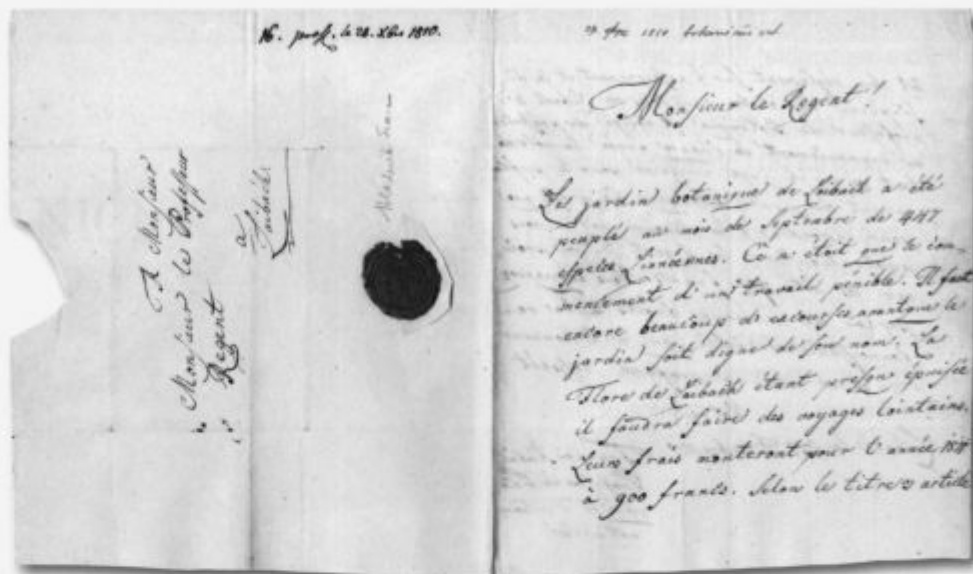 16. pross. le 28. Xbre 1810.
A Monsieur
Monsieur le Professeur
Regent
à
Laibach
1810
Monsieur le Regent!
Le jardin botanique de Laibach a été
peuplé au mois de Septembre de 4147
espèces Linnéennes. Ce n'étoit que le com-
mencement d'un travail pénible. Il faut
encore beaucoup de secourses avant que le
jardin soit digne de son nom. La
Flore de Laibach étant presque épuisée
il faudra faire des voyages lointains.
Leurs frais monteront pour l'année 1811
à 900 francs. Selon le titre article